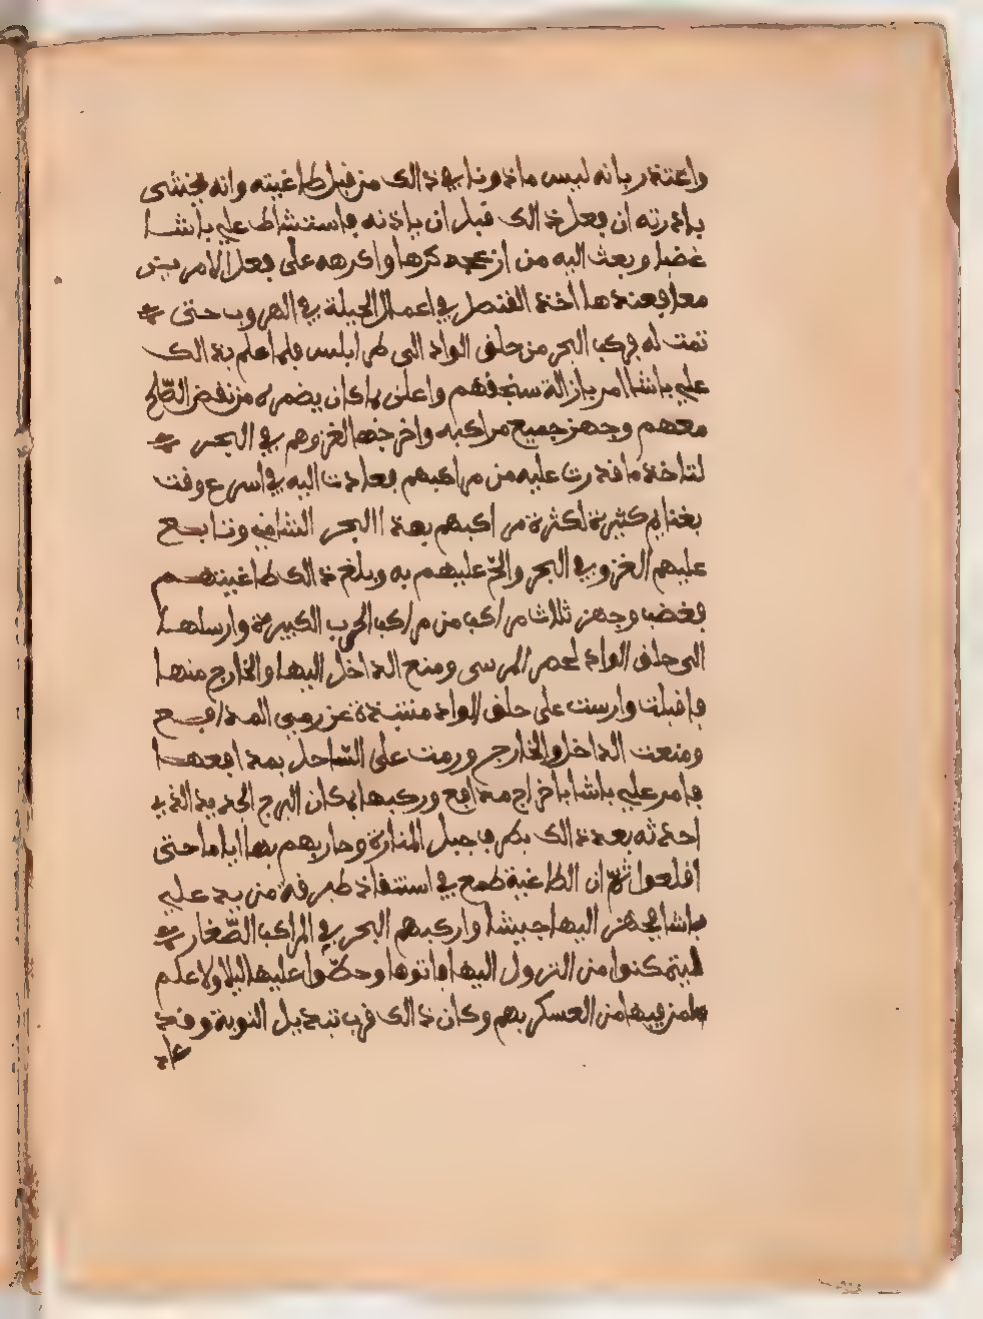 واعتذر بانه ليس ماذونا في ذالك من قبل طاغيته وانه يخشى
بادرته ان فعل ذالك قبل ان ياذنه فاستشاط علي باشا
غضبا وبعث اليه من ازعجه كرها واكرهه على فعل الامرين
معا فعندها اخذ القنصل في اعمال الحيلة في الهروب حتى
تمت له فركب البحر من حلق الواد الى طرابلس فلما علم بذالك
علي باشا امر بازالة سنجقهم واعلن بما كان يضمره من نقض الصّلح
معهم وجهز جميع مراكبه واخرجها لغزوهم في البحر
لتاخذ ما قدرت عليه من مراكبهم فعادت اليه في اسرع وقت
بغنايم كثيرة لكثرة مراكبهم بهذا البحر الشامي وتابع
عليهم الغزو في البحر والحّ عليهم به وبلغ ذالك طاغيتهم
فغضب وجهز ثلاث مراكب من مراكب الحرب الكبيرة وارسلها
الى حلق الواد لحصر المرسى ومنع الداخل اليها والخارج منها
فاقبلت وارست على حلق الواد منتبذة عن رمي المدافع
ومنعت الداخل والخارج ورمت على السّاحل بمدافعها
فامر علي باشا باخراج مدافع وركبها بمكان البرج الجديد الذي
احدثه بعد ذالك بطرف جبل المنارة وحاربهم بها اياما حتى
اقلعوا ثمّ ان الطاغية طمع في استنقاذ طبرقة من يد علي
باشا فجهز اليها جيشا واركبهم البحر في المراكب الصّغار
ليتمكنوا من النزول اليها فاتوها وحطّوا عليها ليلا ولا علم
لمن فيها من العسكر بهم وكان ذالك قرب تبديل النوبة وقد
عاد